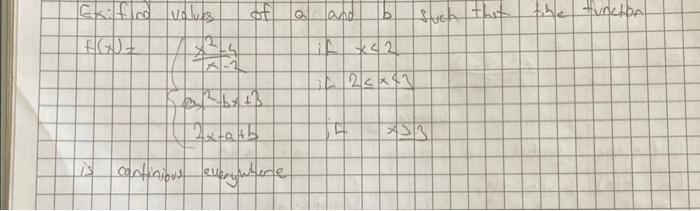 Ex: find values of a and b such that the function
f(x)= x²-4 / x-2 if x<2
if 2≤x<3
ax²-bx+3
2x-a+b if x≥3
is continious everywhere